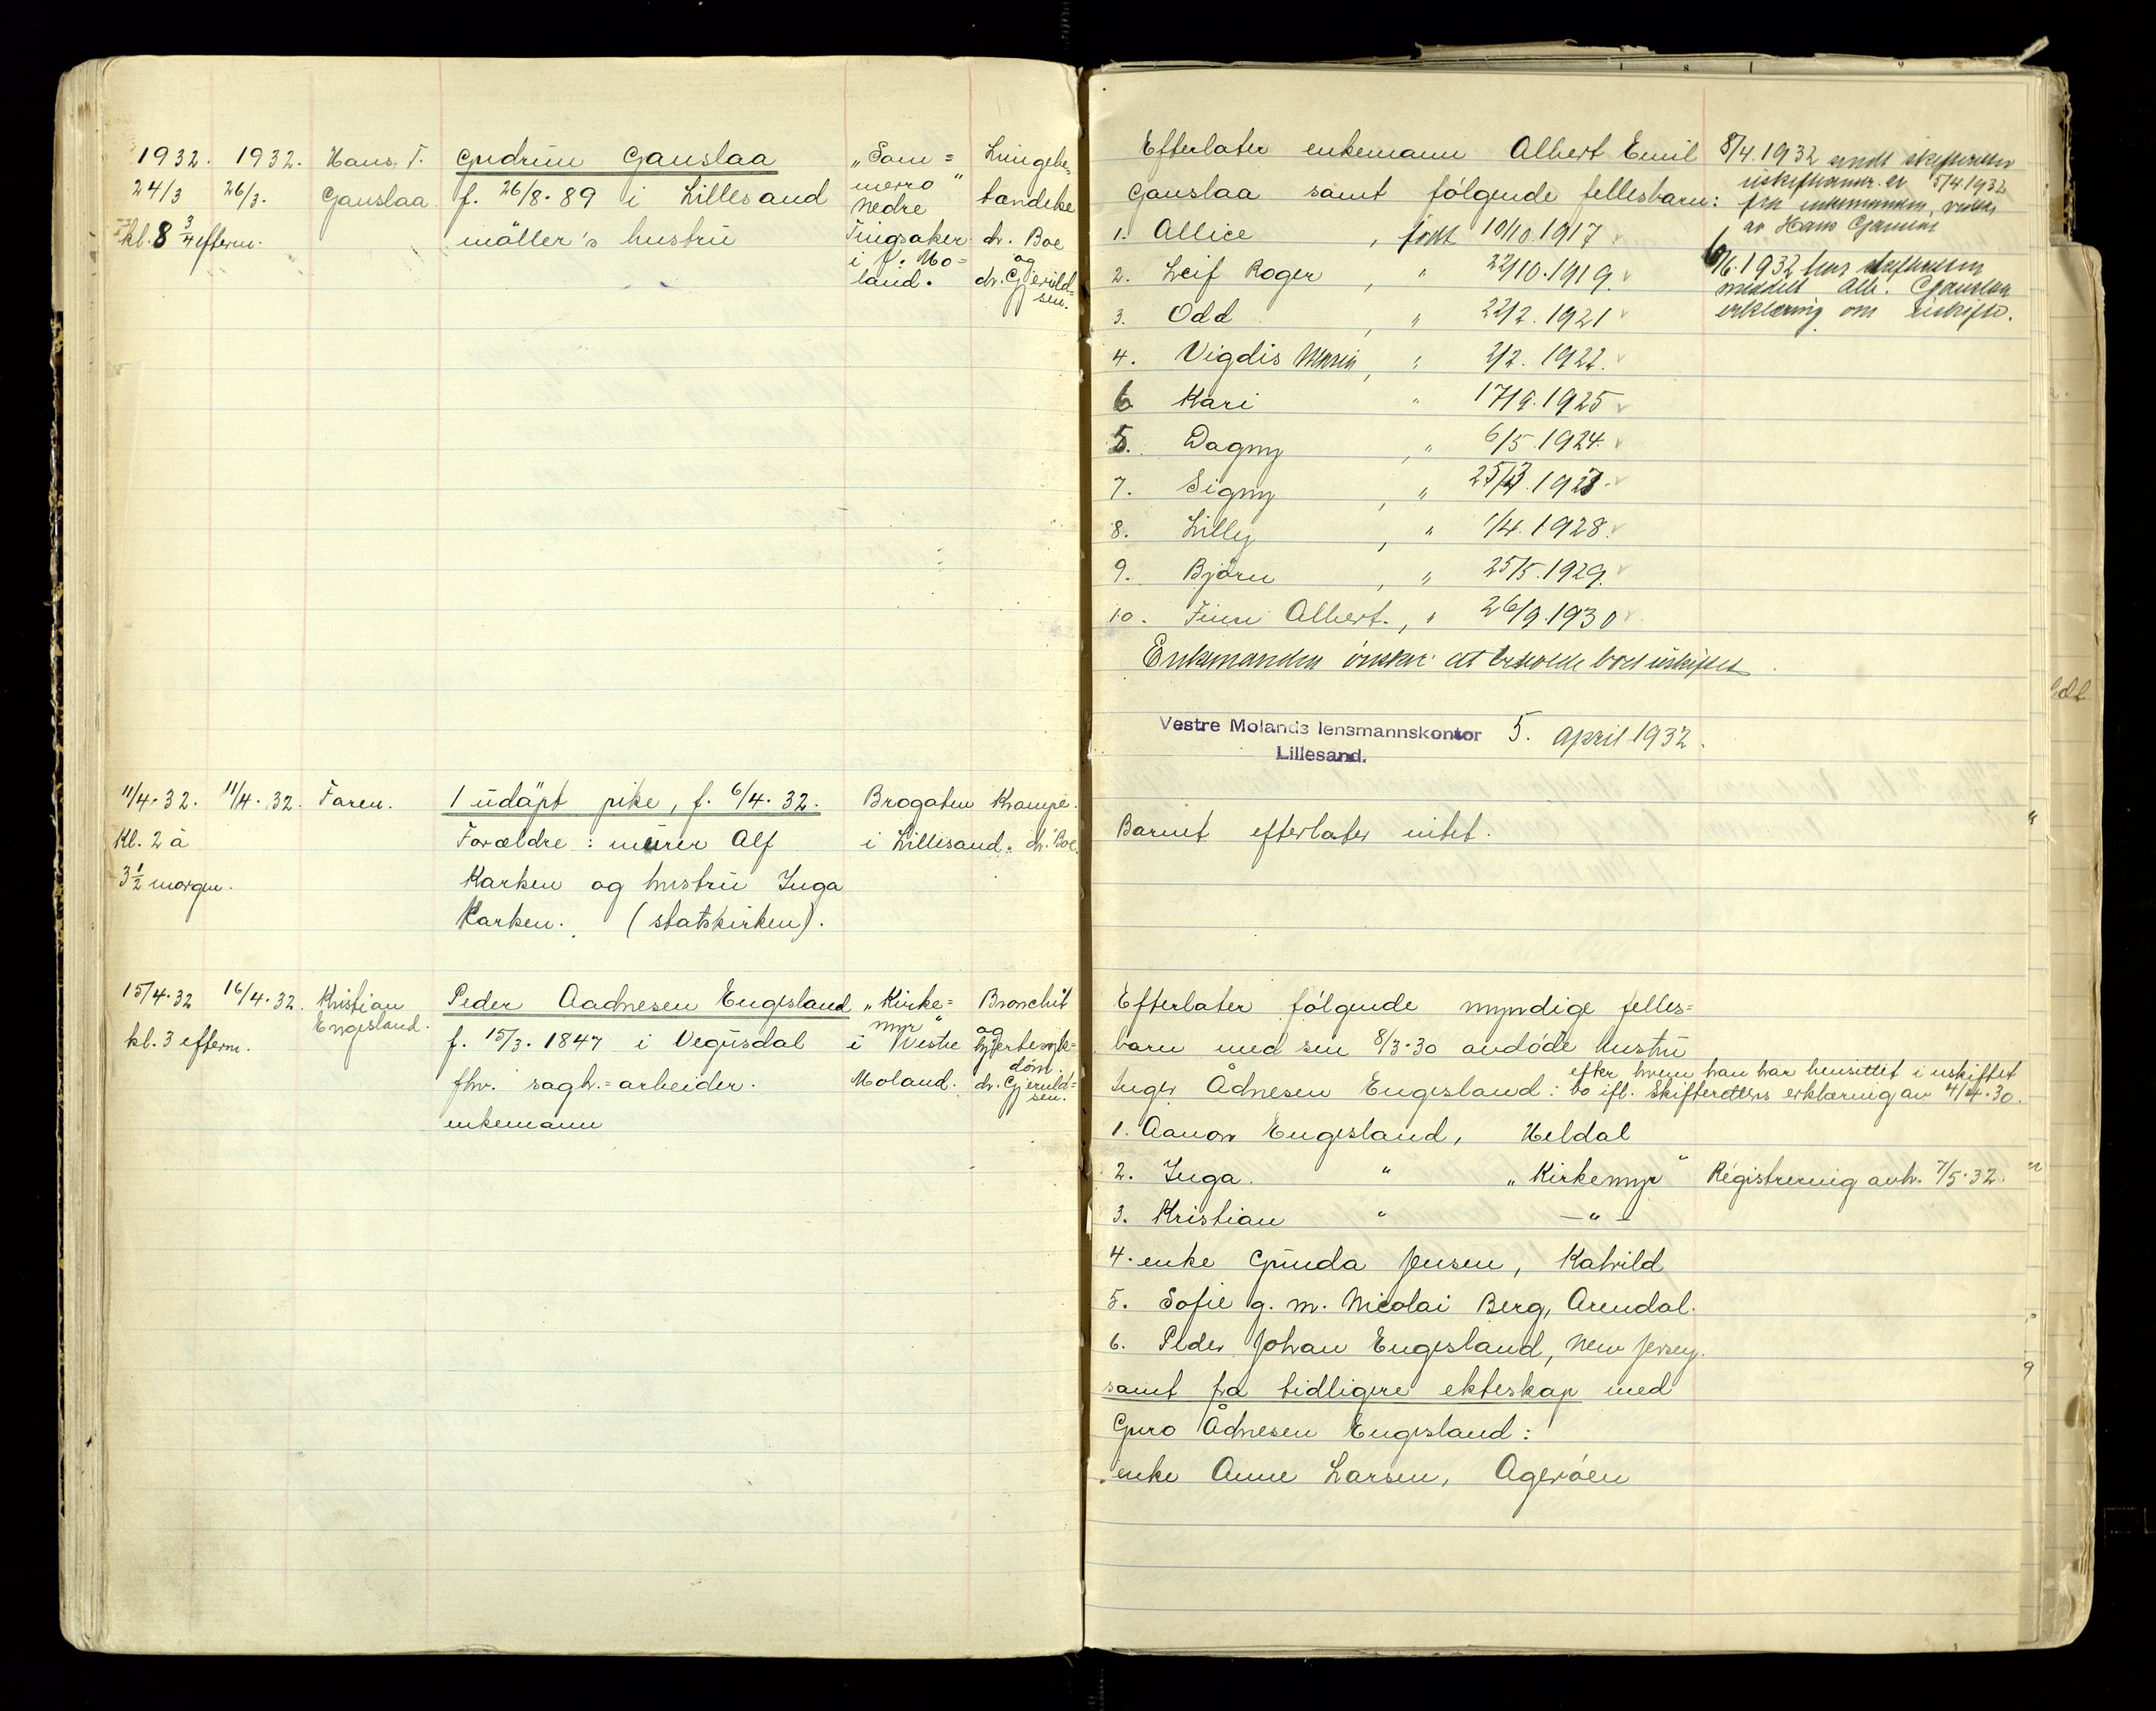 1932. 1932. Hans T. Gudrun Gauslaa „Som= Lungebe=
24/3 26/3. Gauslaa. f. 26/8.89 i Lillesand merro“ tændelse
kl. 8 3/4 efterm. møller's hustru Nedre dr. Boe
Tingsaker og
i V. Mo= dr. Gjeruld=
land. sen.
11/4.32. 11/4.32. Faren. 1 udøpt pike, f. 6/4.32. Brogaten Krampe.
Kl. 2 à Forældre: murer Alf i Lillesand. dr. Boe.
3 1/2 morgen. Karken og hustru Inga
Karken. (statskirken).
15/4.32 16/4.32. Kristian Peder Aadnesen Engesland „Kirke= Bronchit
Engesland. myr“ og
kl. 3 efterm. f. 15/3.1847 i Vegusdal i Vestre hjertesyk=
dom.
fhv. sagbr.=arbeider. Moland. dr. Gjeruld=
sen.
enkemann
Efterlater enkemann Albert Emil
Gauslaa samt følgende fellesbarn:
1. Allice, født 10/10.1917
2. Leif Roger, " 22/10.1919.
3. Odd, " 22/2.1921
4. Vigdis Marie, " 2/2.1922.
6. Kari " 17/9.1925
5. Dagny, " 6/5.1924.
7. Signy, "
8. Lilly, " 1/4.1928.
9. Bjørn, " 25/5.1929.
10. Finn Albert., " 26/9.1930
Enkemanden ønsker at beholde boet uskiftet.
8/4.1932 sendt skifteretten
5/4 1932
fra enkemannen,
av Hans Gauslaa
6/6.1932 har skifteretten
meddelt Alb. Gauslaa
erklæring om uskifte.
Vestre Molands lensmannskontor 5. april 1932.
Lillesand.
Barnet efterlater intet.
Efterlater følgende myndige felles=
barn med sin 8/3.30 avdøde hustru
efter hvem han har hensittet i uskiftet
Inger Ådnesen Engesland: bo ifl. Skifterettens erklæring av 4/4.30.
1. Aanon Engesland, Heldal
2. Inga " „Kirkemyr“ Registrering avh. 7/5.32.
3. Kristian " —"—
4. enke Gunda Jensen, Kalvild
5. Sofie g. m. Nicolai Berg, Arendal.
6. Peder Johan Engesland, New Jersey.
samt fra tidligere ekteskap med
Guro Ådnesen Engesland:
enke Anne Larsen, Agerøen